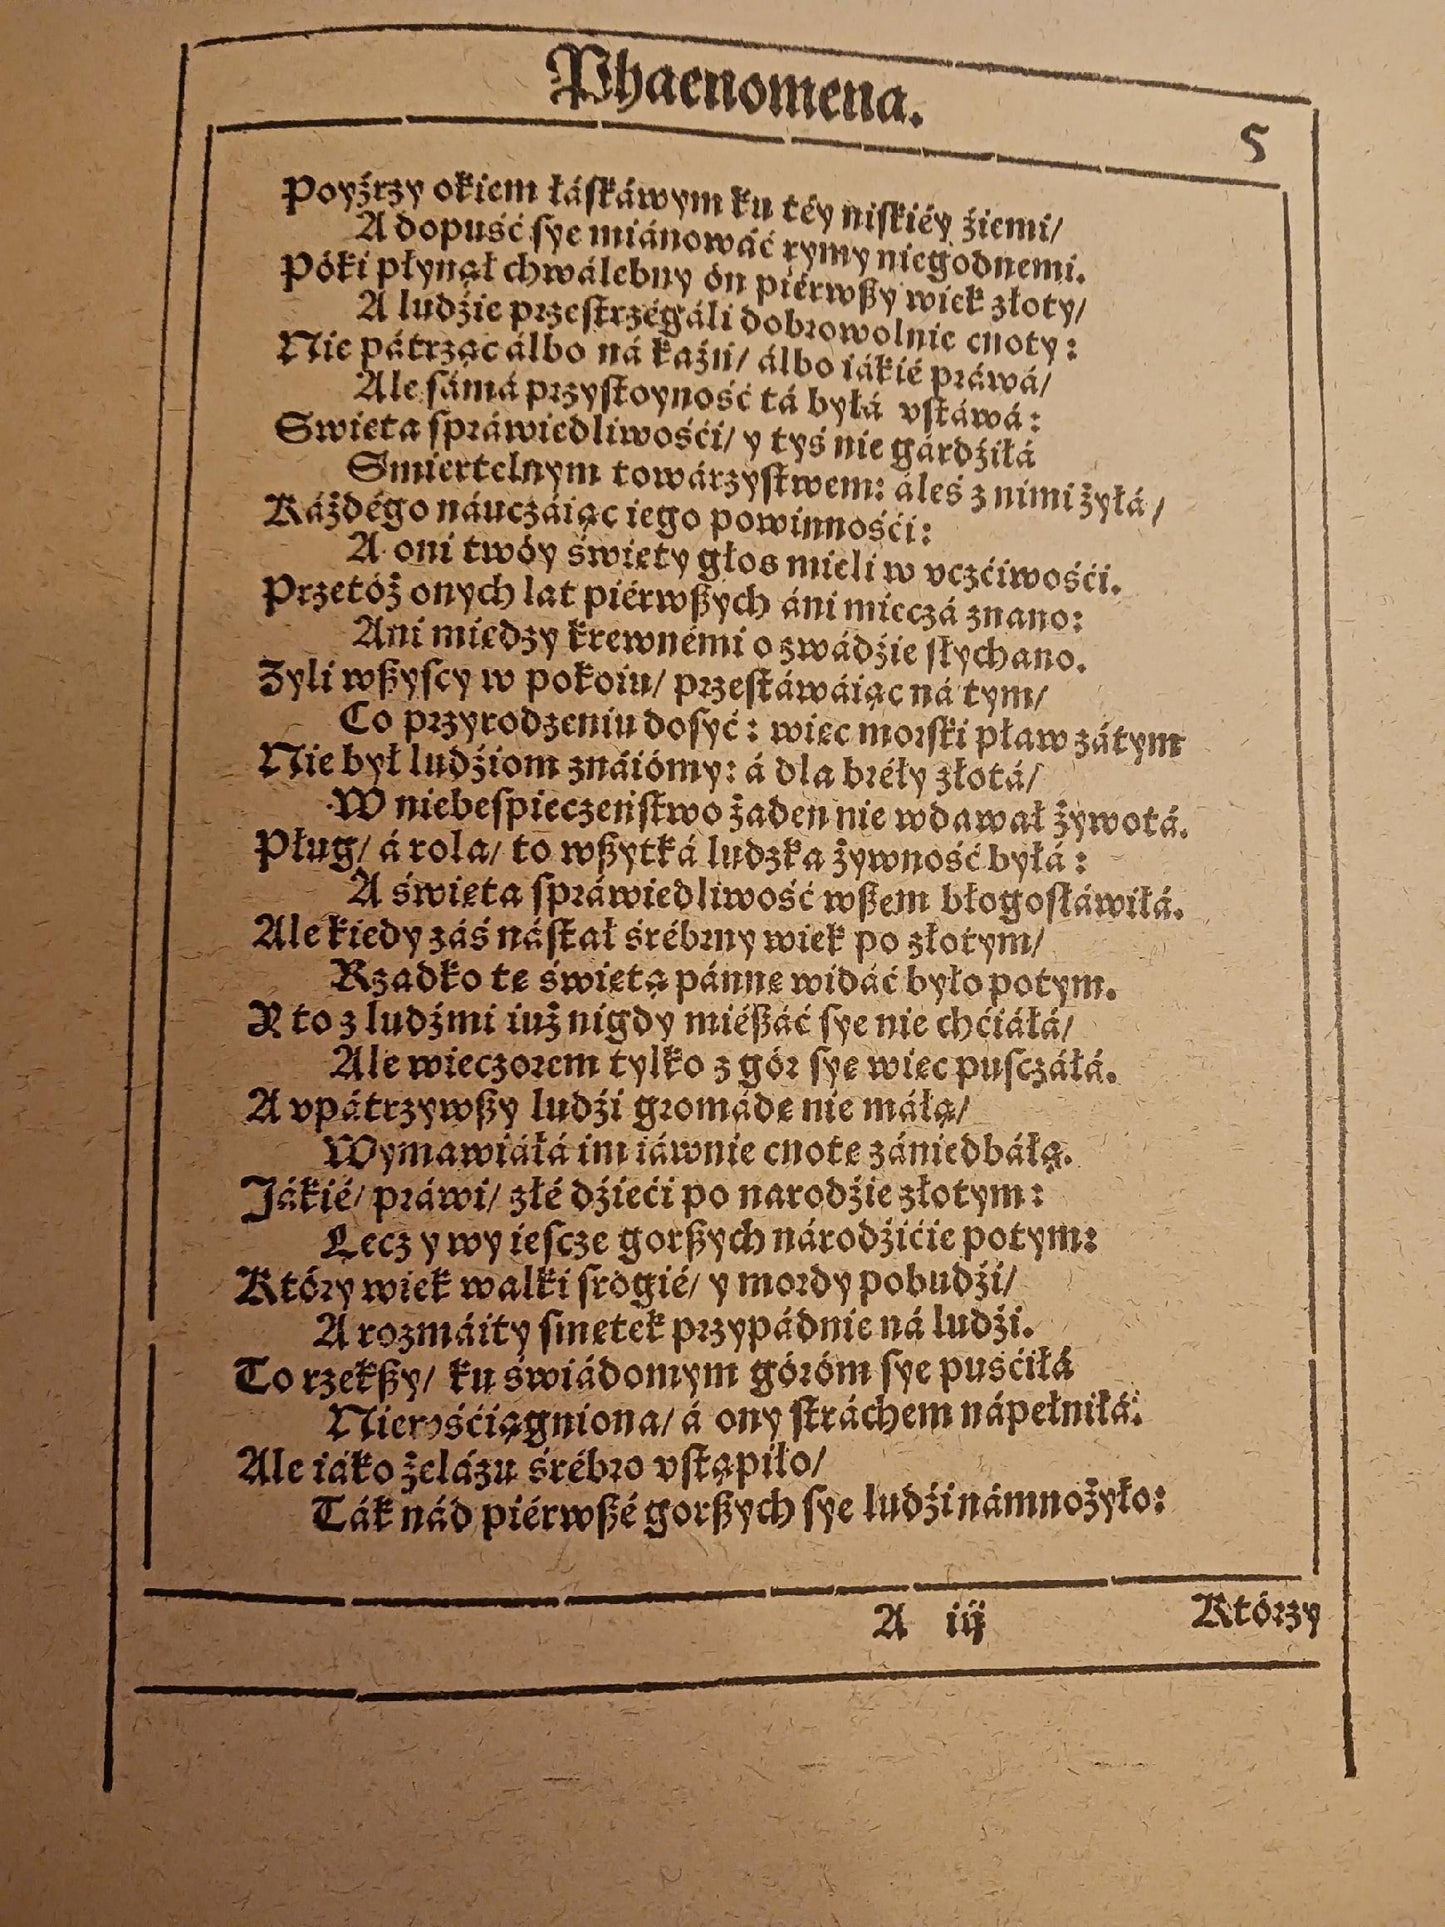 Phaenomena.
5
Poyźrzy okiem łáſkáwym ku téy niſkiéy źiemi/
A dopuść ſye miánowáć rymy niegodnemi.
Póki płynął chwálebny ón piérwßy wiek złoty/
A ludźie przeſtrzégáli dobrowolnie cnoty:
Nie pátrząc álbo ná kaźń/ álbo iákié práwá/
Ale ſámá przyſtoyność tá byłá vſtáwá:
Swięta ſpráwiedliwośći/ y tyś nie gárdźiłá
Smiertelnym towárzyſtwem: áleś z nimi żyłá/
Káżdégo náuczáiąc iego powinnośći:
A oni twóy święty głos mieli w vczćiwośći.
Przetóż onych lat piérwßych áni mieczá znano:
Ani między krewnémi o zwádźie ſłychano.
Zyli wßyſcy w pokoiu/ przeſtáwáiąc ná tym/
Co przyrodzeniu doſyć: więc morſki pław zátym
Nie był ludźiom znáiómy: á dla bréły złotá/
W niebeſpieczeńſtwo żaden nie wdawał żywotá.
Pług/ á rola/ to wßytká ludzka żywność byłá:
A święta ſpráwiedliwość wßem błogoſłáwiłá.
Ale kiedy záś náſtał śrébrny wiek po złotym/
Rzadko tę świętą pánnę widáć było potym.
Y to z ludźmi iuż nigdy miéßáć ſye nie chćiáłá/
Ale wieczorem tylko z gór ſye więc puſczáłá.
A vpátrzywßy ludźi gromádę nie máłą/
Wymawiáłá im iáwnie cnotę zániedbáłą.
Jákié/ práwi/ złé dźieći po narodźie złotym:
Lecz y wy ieſcze gorßych národźićie potym:
Który wiek walki ſrogié/ y mordy pobudźi/
A rozmáity ſmętek przypádnie ná ludźi.
To rzekßy/ ku świádomym góróm ſye puśćiłá
Nierośćiągniona/ á ony ſtráchem nápełniłá:
Ale iáko żelázu śrébro vſtąpiło/
Ták nád piérwßé gorßych ſye ludźi námnożyło:
A iij
Którzy